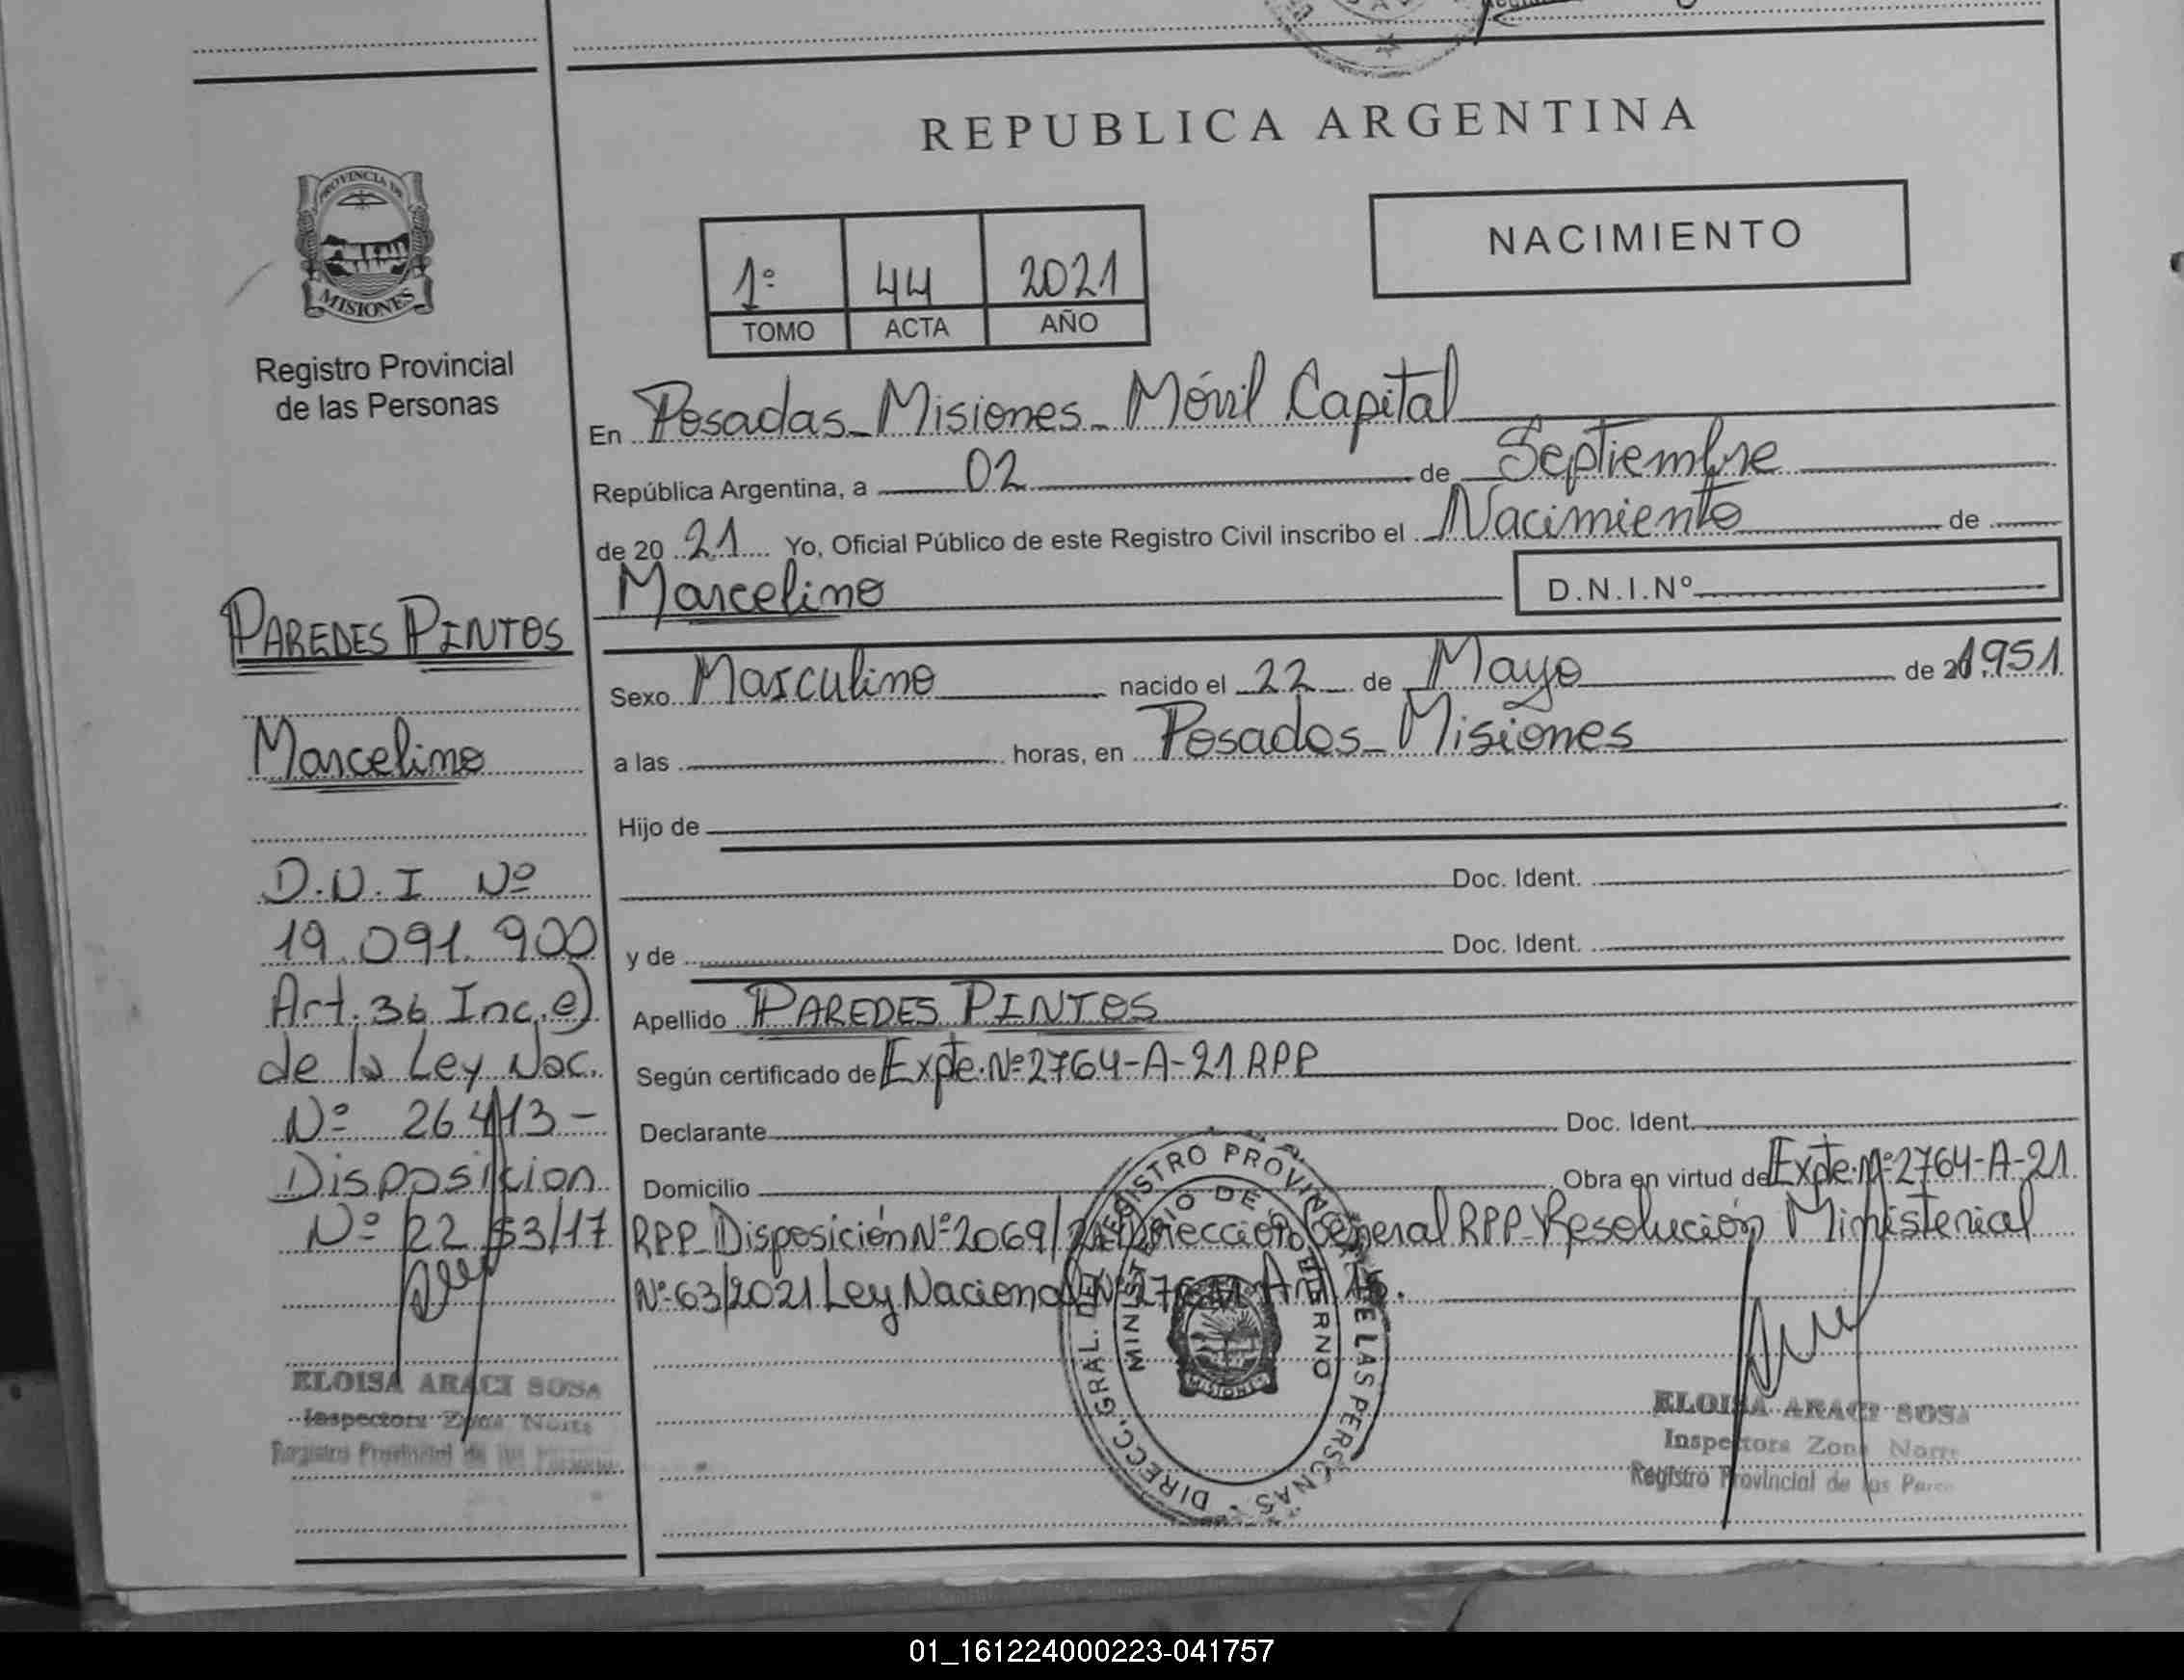 REPUBLICA ARGENTINA
PROVINCIA DE
MISIONES
Registro Provincial
de las Personas
1º 44 2021
TOMO ACTA AÑO
NACIMIENTO
En Posadas - Misiones - Móvil Capital
República Argentina, a 02 de Septiembre
de 20 21 Yo, Oficial Público de este Registro Civil inscribo el Nacimiento de
Marcelino
D.N.I.Nº
Sexo Masculino nacido el 22 de Mayo de 1951
a las horas, en Posadas - Misiones
Hijo de
Doc. Ident.
y de Doc. Ident.
Apellido PAREDES PINTOS
Según certificado de Expte. Nº 2764-A-21 RPP
Declarante Doc. Ident.
Domicilio Obra en virtud de Expte. Nº 2764-A-21
RPP - Disposición Nº 2069/ Dirección General RPP - Resolución Ministerial
Nº 63/2021 Ley Nacional Nº Art.
PAREDES PINTOS
Marcelino
D.N.I Nº
19.091.900
Art. 36 Inc. e)
de la Ley Nac.
Nº 26413 -
Disposicion
Nº 22 /17
ELOISA ARACI SOSA
Inspectora Zona Norte
Registro Provincial de las
DIRECC. GRAL. DEL REGISTRO PROVINCIAL DE LAS PERSONAS
MINISTERIO DE GOBIERNO
MISIONES
ELOISA ARACI SOSA
Inspectora Zona Norte
Registro Provincial de las
01_161224000223-041757